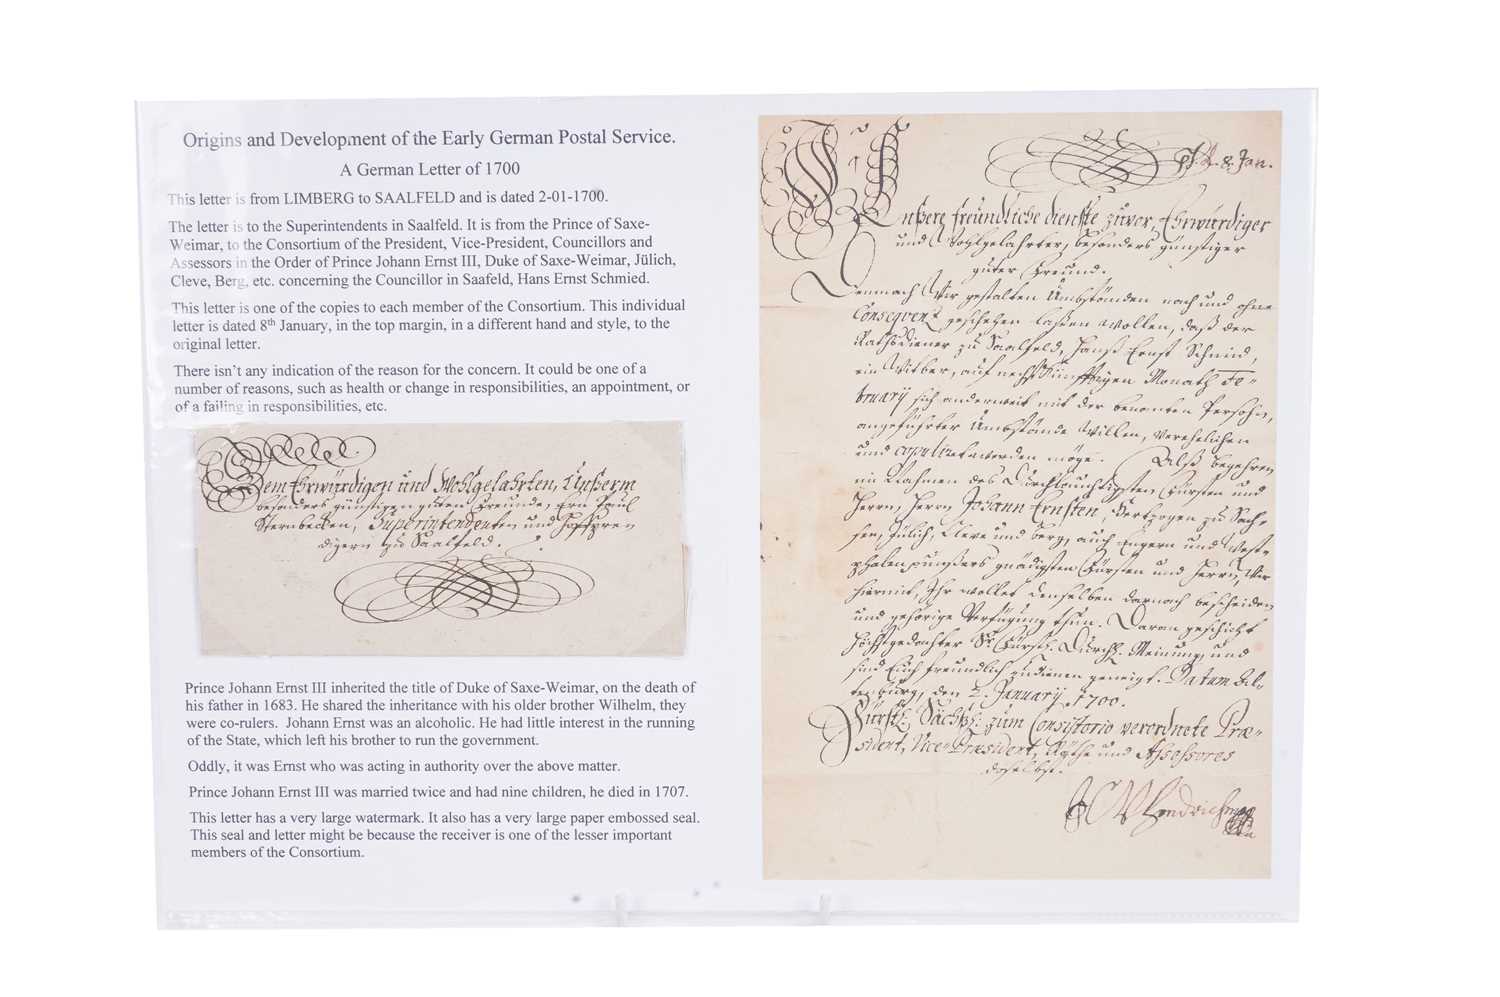 Origins and Development of the Early German Postal Service.
A German Letter of 1700
This letter is from LIMBERG to SAALFELD and is dated 2-01-1700.
The letter is to the Superintendents in Saalfeld. It is from the Prince of Saxe-
Weimar, to the Consortium of the President, Vice-President, Councillors and
Assessors in the Order of Prince Johann Ernst III, Duke of Saxe-Weimar, Jülich,
Cleve, Berg, etc. concerning the Councillor in Saafeld, Hans Ernst Schmied.
This letter is one of the copies to each member of the Consortium. This individual
letter is dated 8th January, in the top margin, in a different hand and style, to the
original letter.
There isn't any indication of the reason for the concern. It could be one of a
number of reasons, such as health or change in responsibilities, an appointment, or
of a failing in responsibilities, etc.
Dem Ehrwürdigen und Wohlgelahrten, Unßerm
besonders günstigen guten Freunde, Ern Paul
Sternbecken, Superintendenten und Hoffpre
digern zu Saalfeld.
Prince Johann Ernst III inherited the title of Duke of Saxe-Weimar, on the death of
his father in 1683. He shared the inheritance with his older brother Wilhelm, they
were co-rulers. Johann Ernst was an alcoholic. He had little interest in the running
of the State, which left his brother to run the government.
Oddly, it was Ernst who was acting in authority over the above matter.
Prince Johann Ernst III was married twice and had nine children, he died in 1707.
This letter has a very large watermark. It also has a very large paper embossed seal.
This seal and letter might be because the receiver is one of the lesser important
members of the Consortium.
8. Jan.
Unßere freundliche dienste zuvor, Ehrwürdiger
und Wohlgelahrter, besonders günstiger
guter Freund.
Demnach Wir gestalten Umbständen nach und ohne
Conseqvenz geschehen laßen wollen, daß der
Rathsdiener zu Saalfeld, Hanß Ernst Schmid,
ein Witber, auf nechstkünfftigen Monath Fe-
bruarij sich anderweit mit der benanten Persohn,
angeführter Umbstände Willen, verehelichen
und copuliret werden möge. Alß begehren
im Nahmen des Durchlauchtigsten Fürsten und
Herrn, Herrn Johann Ernsten, Hertzogen zu Sach-
sen, Jülich, Cleve und berg, auch Engern und West-
phalen, Unßers gnädigsten Fürsten und Herrn, Wir
hiermit, Ihr wollet denselben darnach bescheiden
und gehörige Verfügung thun. Daran geschicht
Höchstgedachter Sr. Fürstl. Durchl. Meinung, und
sind Euch freundlich zu dienen geneigt. Datum Al-
tenburg, den 2. January 1700.
Fürstl. Sächßl. zum Consistorio verordnete Præ-
sident, Vice-Præsident, Räthe und Assessores
daselbst.